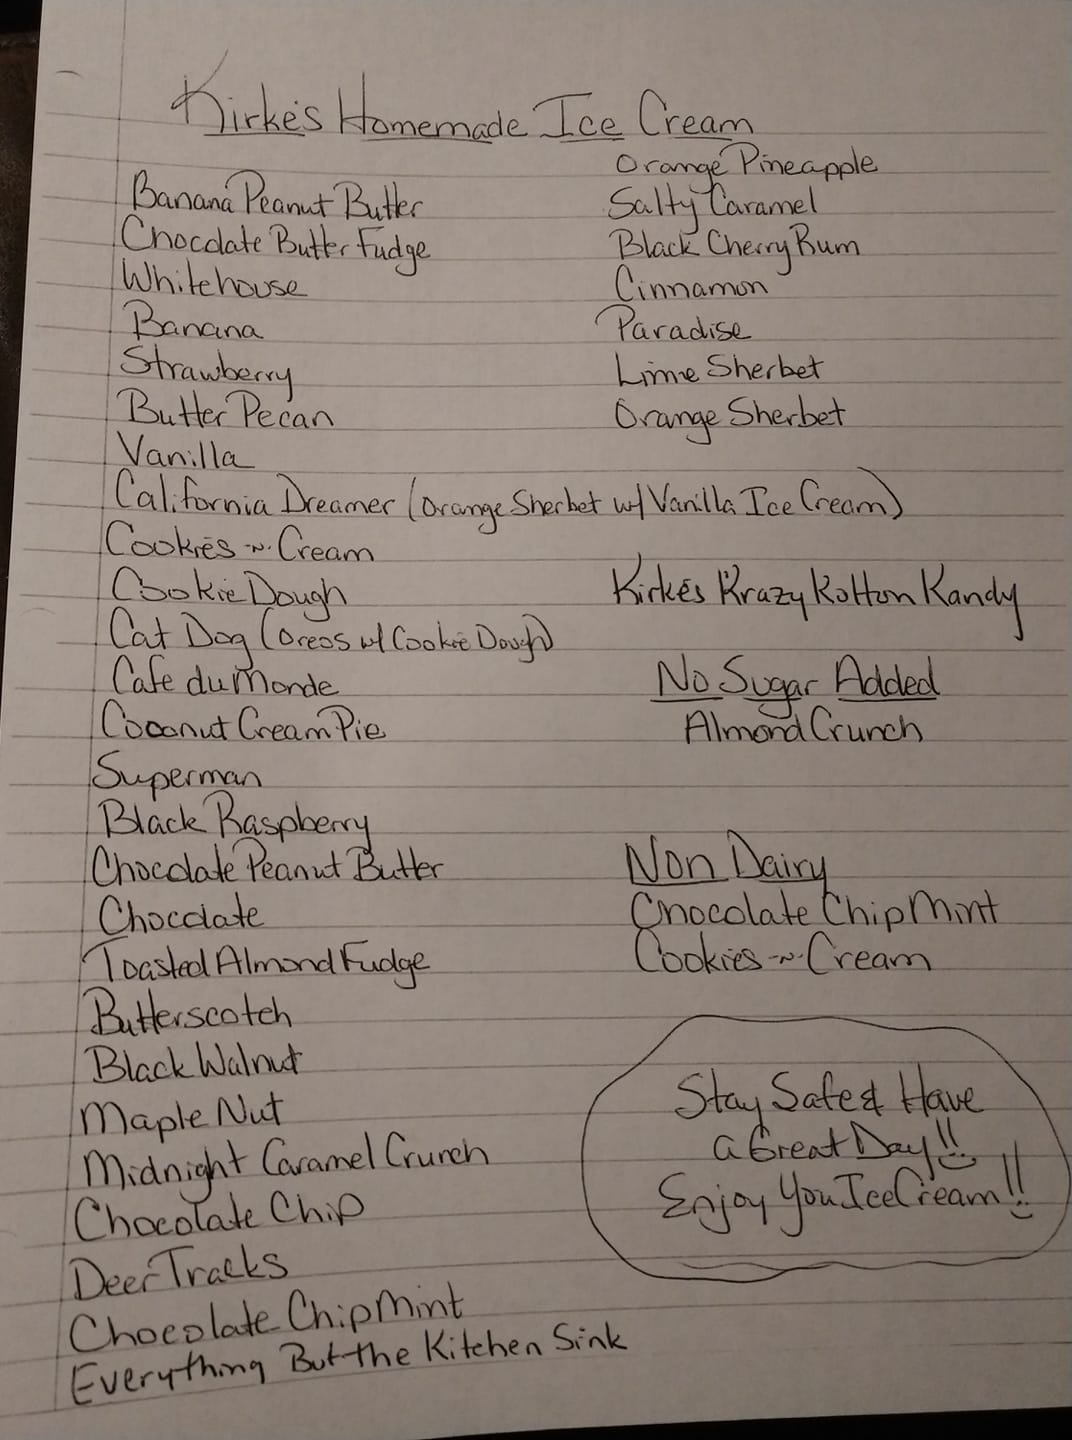 Kirke's Homemade Ice Cream
Banana Peanut Butter
Chocolate Butter Fudge
Whitehouse
Banana
Strawberry
Butter Pecan
Vanilla
California Dreamer (Orange Sherbet w/ Vanilla Ice Cream)
Cookies ~n~ Cream
Cookie Dough
Cat Dog (Oreos w/ Cookie Dough)
Cafe du Monde
Coconut Cream Pie
Superman
Black Raspberry
Chocolate Peanut Butter
Chocolate
Toasted Almond Fudge
Butterscotch
Black Walnut
Maple Nut
Midnight Caramel Crunch
Chocolate Chip
Deer Tracks
Chocolate Chip Mint
Everything But the Kitchen Sink
Orange Pineapple
Salty Caramel
Black Cherry Rum
Cinnamon
Paradise
Lime Sherbet
Orange Sherbet
Kirke's Krazy Kotton Kandy
No Sugar Added
Almond Crunch
Non Dairy
Chocolate Chip Mint
Cookies ~n~ Cream
Stay Safe & Have
a Great Day!!
Enjoy You Ice Cream!!